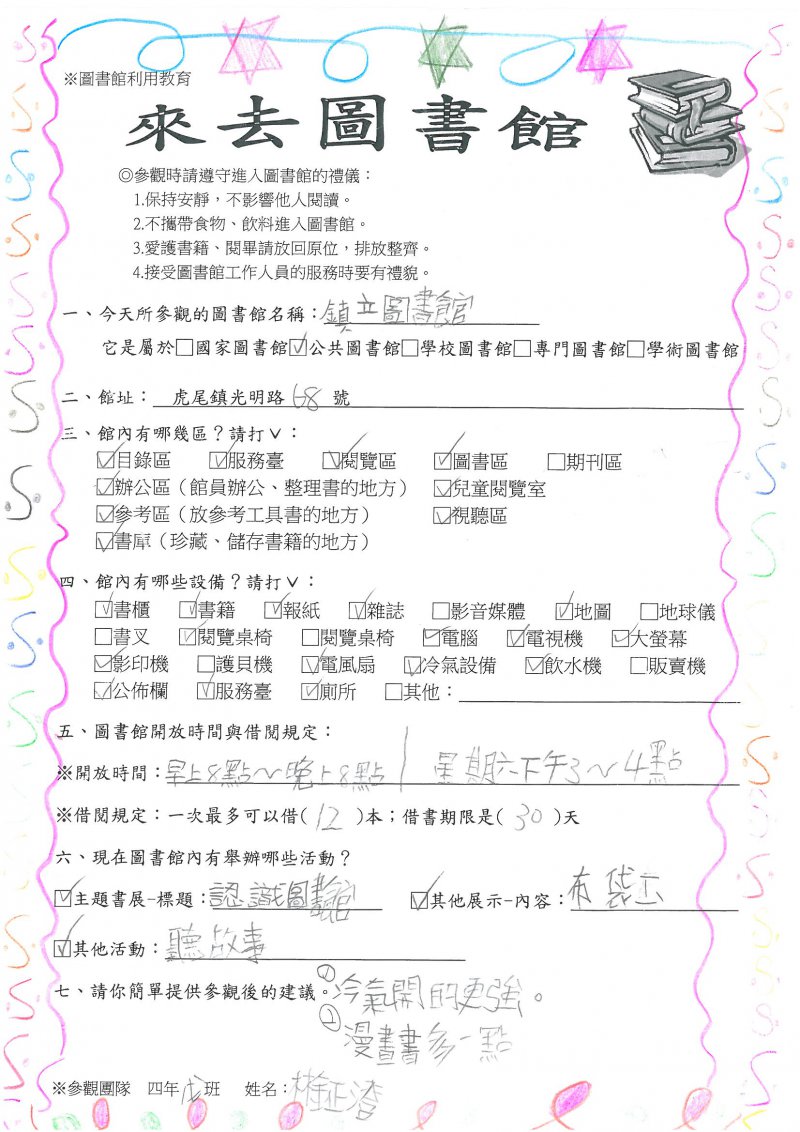 ※圖書館利用教育
來去圖書館
◎參觀時請遵守進入圖書館的禮儀：
1.保持安靜，不影響他人閱讀。
2.不攜帶食物、飲料進入圖書館。
3.愛護書籍、閱畢請放回原位，排放整齊。
4.接受圖書館工作人員的服務時要有禮貌。
一、今天所參觀的圖書館名稱：鎮立圖書館
它是屬於□國家圖書館☑公共圖書館□學校圖書館□專門圖書館□學術圖書館
二、館址： 虎尾鎮光明路68號
三、館內有哪幾區？請打∨：
☑目錄區 ☑服務臺 ☑閱覽區 ☑圖書區 □期刊區
☑辦公區（館員辦公、整理書的地方） ☑兒童閱覽室
☑參考區（放參考工具書的地方） ☑視聽區
☑書庫（珍藏、儲存書籍的地方）
四、館內有哪些設備？請打∨：
☑書櫃 ☑書籍 ☑報紙 ☑雜誌 □影音媒體 ☑地圖 □地球儀
□書叉 ☑閱覽桌椅 □閱覽桌椅 ☑電腦 ☑電視機 ☑大螢幕
☑影印機 □護貝機 ☑電風扇 ☑冷氣設備 ☑飲水機 □販賣機
☑公佈欄 ☑服務臺 ☑廁所 □其他：
五、圖書館開放時間與借閱規定：
※開放時間：早上8點～晚上8點 | 星期六下午3～4點
※借閱規定：一次最多可以借( 12 )本；借書期限是( 30 )天
六、現在圖書館內有舉辦哪些活動？
☑主題書展-標題：認識圖書館 ☑其他展示-內容：布袋
☑其他活動：聽故事
七、請你簡單提供參觀後的建議。①冷氣開的更強。
②漫畫書多一點
※參觀團隊 四年戊班 姓名：林